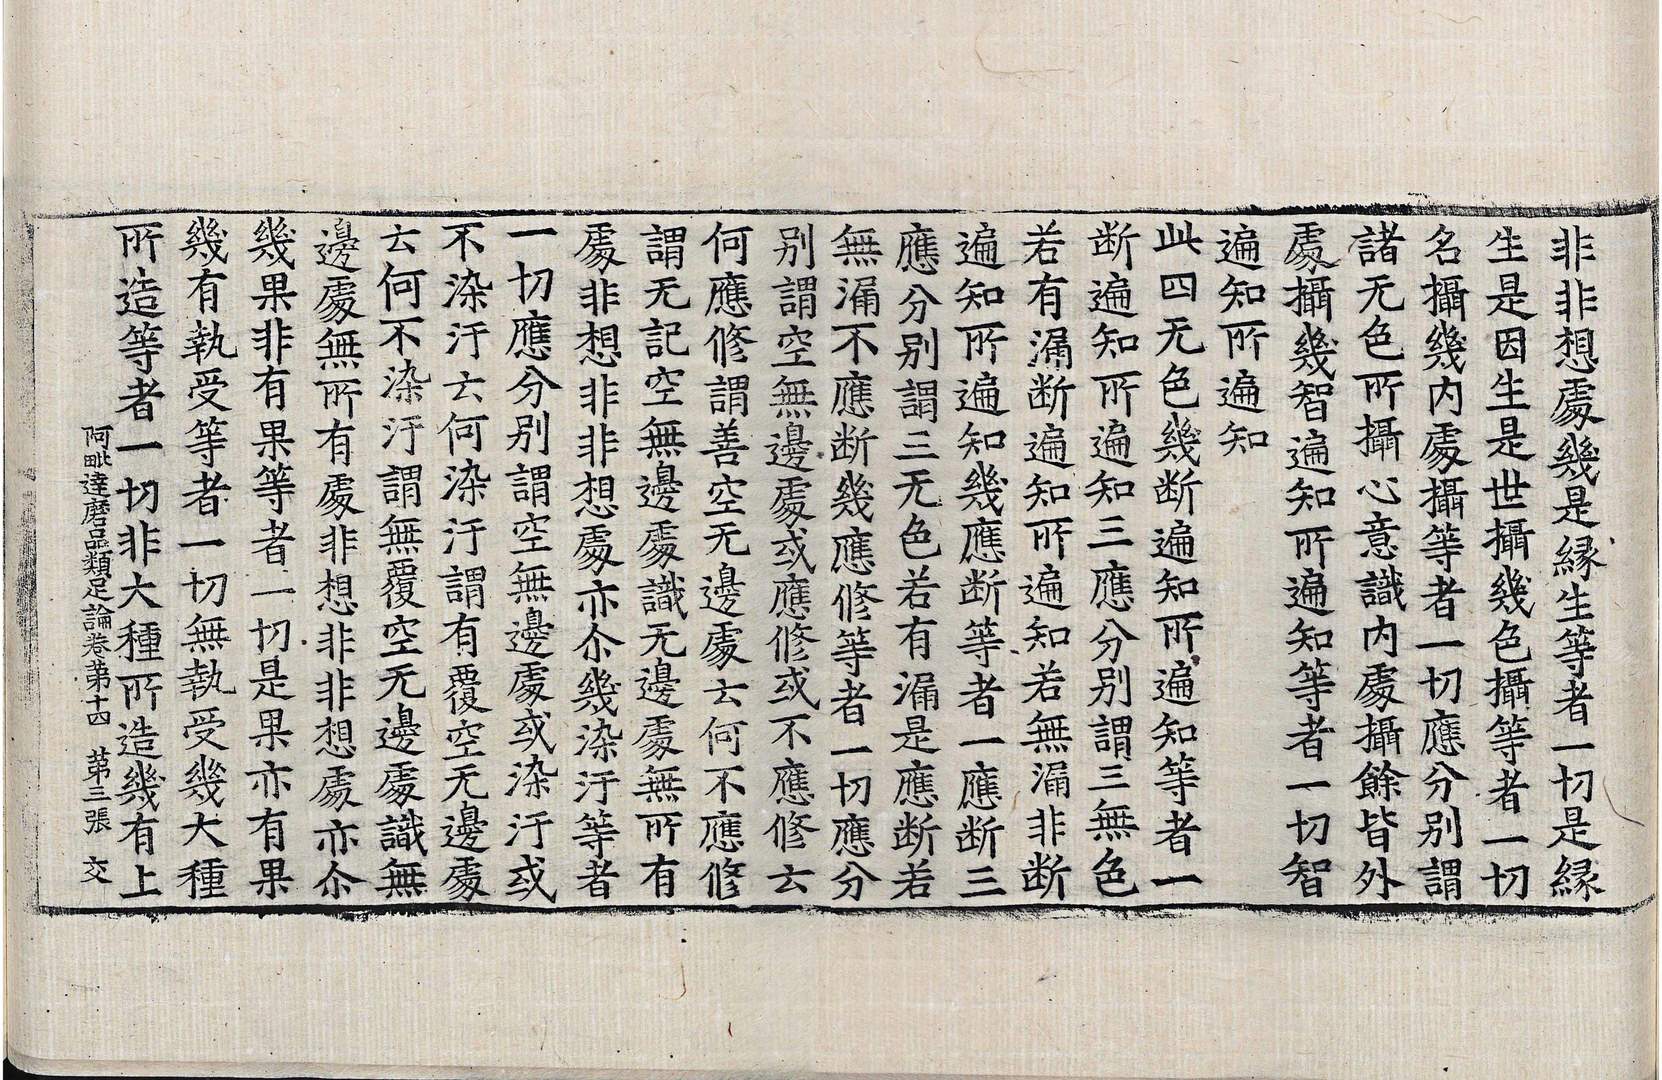 非非想處幾是緣生等者一切是緣
生是因生是世攝幾色攝等者一切
名攝幾内處攝等者一切應分別謂
諸无色所攝心意識内處攝餘皆外
處攝幾智遍知所遍知等者一切智
遍知所遍知
此四无色幾断遍知所遍知等者一
断遍知所遍知三應分别謂三無色
若有漏断遍知所遍知若無漏非断
遍知所遍知幾應断等者一應断三
應分别謂三无色若有漏是應断若
無漏不應断幾應修等者一切應分
别謂空無邊處或應修或不應修云
何應修謂善空无邊處云何不應修
謂无記空無邊處識无邊處無所有
處非想非非想處亦尒幾染汙等者
一切應分别謂空無邊處或染汙或
不染汙云何染汙謂有覆空无邊處
云何不染汙謂無覆空无邊處識無
邊處無所有處非想非非想處亦尒
幾果非有果等者一切是果亦有果
幾有執受等者一切無執受幾大種
所造等者一切非大種所造幾有上
阿毗達磨品類足論卷第十四 第三張 交